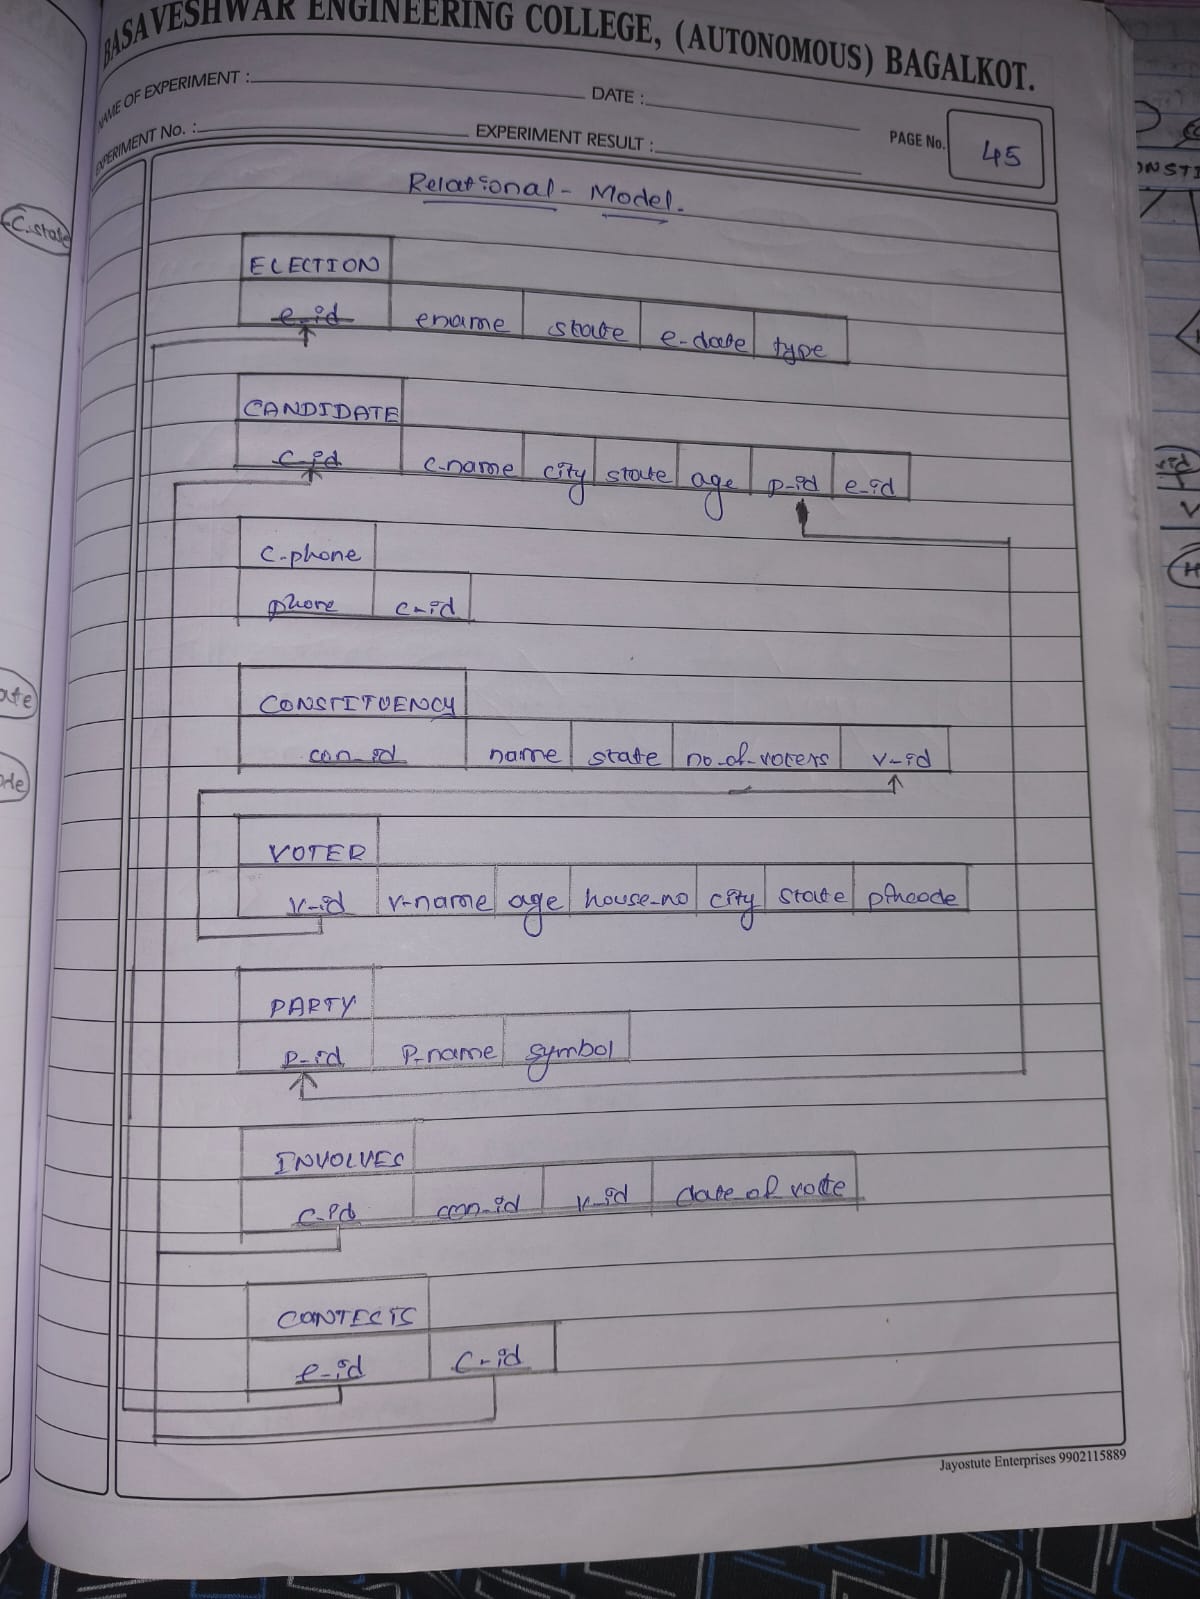 BASAVESHWAR ENGINEERING COLLEGE, (AUTONOMOUS) BAGALKOT.
NAME OF EXPERIMENT :
DATE :
EXPERIMENT No. :
EXPERIMENT RESULT :
PAGE No. 45
Relational - Model.
C.state
ELECTION
e-id ename state e-date type
CANDIDATE
c-id c-name city state age p-id e-id
C-phone
phone c-id
CONSTITUENCY
con-id name state no-of-voters v-id
VOTER
v-id v-name age house-no city state pincode
PARTY
p-id P-name symbol
INVOLVES
c-id con-id v-id date of vote
CONTESTS
e-id C-id
Jayostute Enterprises 9902115889